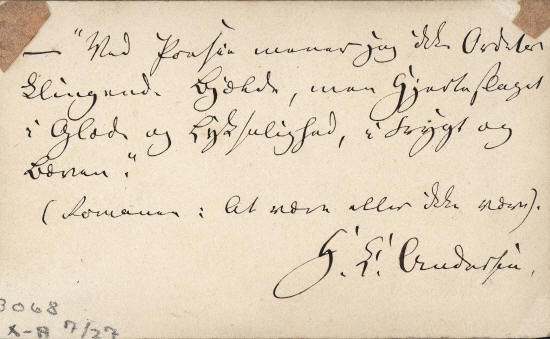 — "Ved Poesie mener jeg ikke Ordets
klingende Bjælde, men Hjerteslaget
i Glæde og Lyksalighed, i Frygt og
Bæven."
(Romanen: At være eller ikke være).
H. C. Andersen.
3068
X-A 7/27